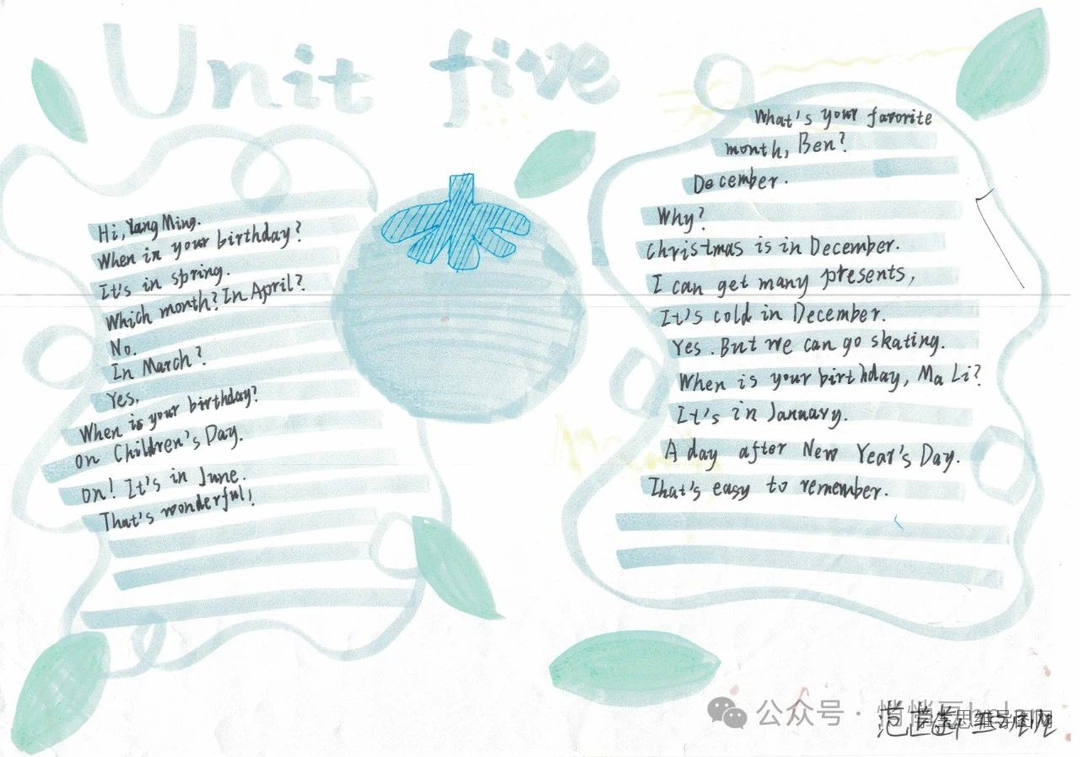 Unit five
Hi, Yang Ming.
When in your birthday?
It's in spring.
Which month? In April?
No.
In March?
Yes.
When is your birthday?
on Children's Day.
on! It's in June.
That's wonderful!
What's your favorite
month, Ben?
December.
Why?
Christmas is in December.
I can get many presents,
It's cold in December.
Yes. But we can go skating.
When is your birthday, Ma Li?
It's in January.
A day after New Year's Day.
That's easy to remember.
公众号